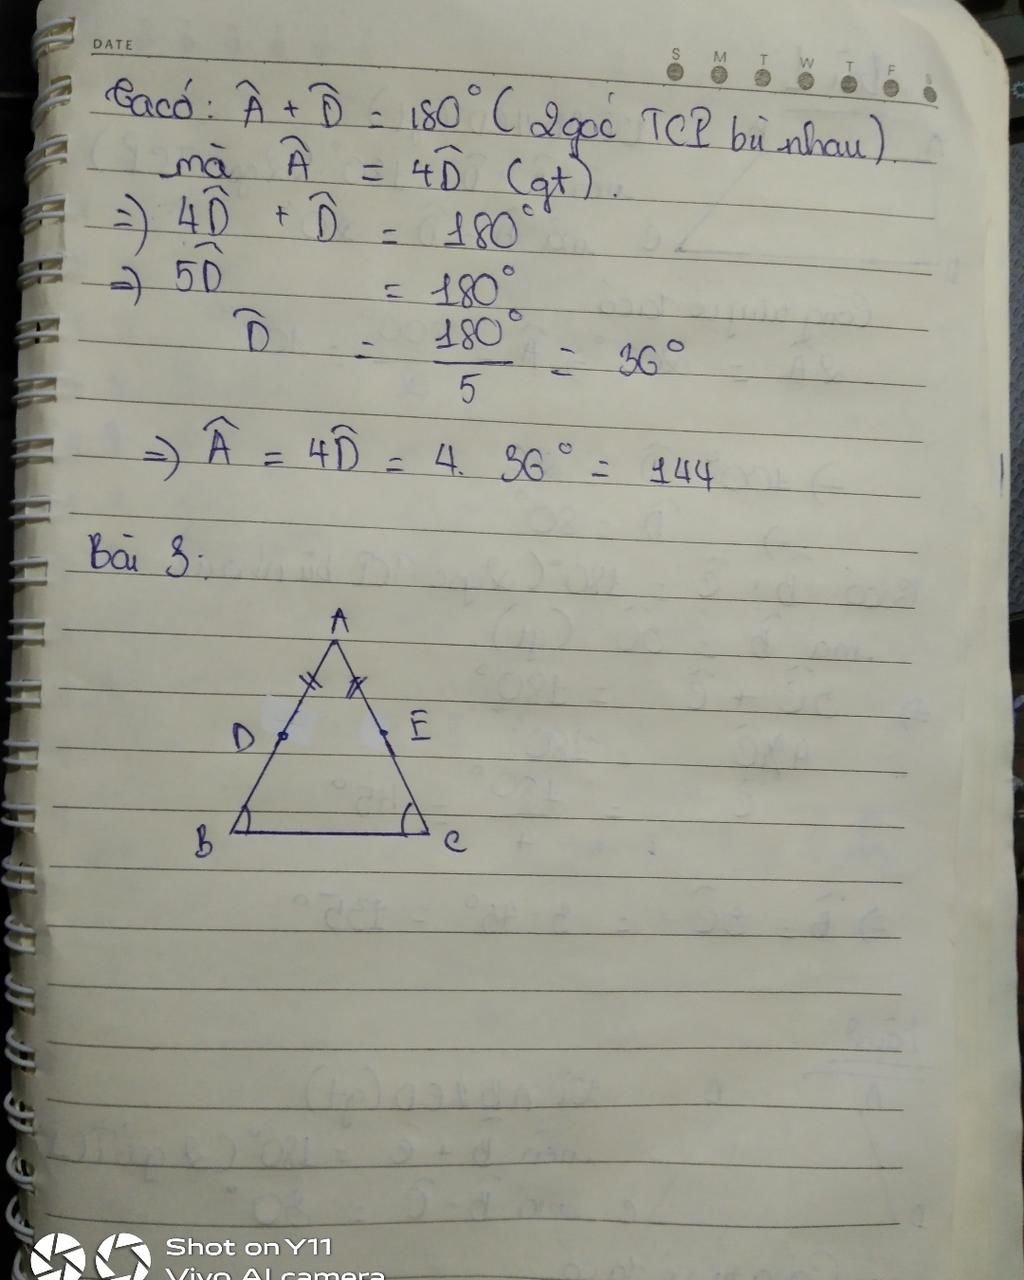 DATE
S M T W T F S
Ta có: Â + D̂ = 180° (2 góc TCP bù nhau).
mà Â = 4D̂ (gt).
=) 4D̂ + D̂ = 180°
=) 5D̂ = 180°
D̂ = 180°/5 = 36°
=) Â = 4D̂ = 4. 36° = 144
Bài 3:
A
D E
B C
Shot on Y11
Vivo AI camera